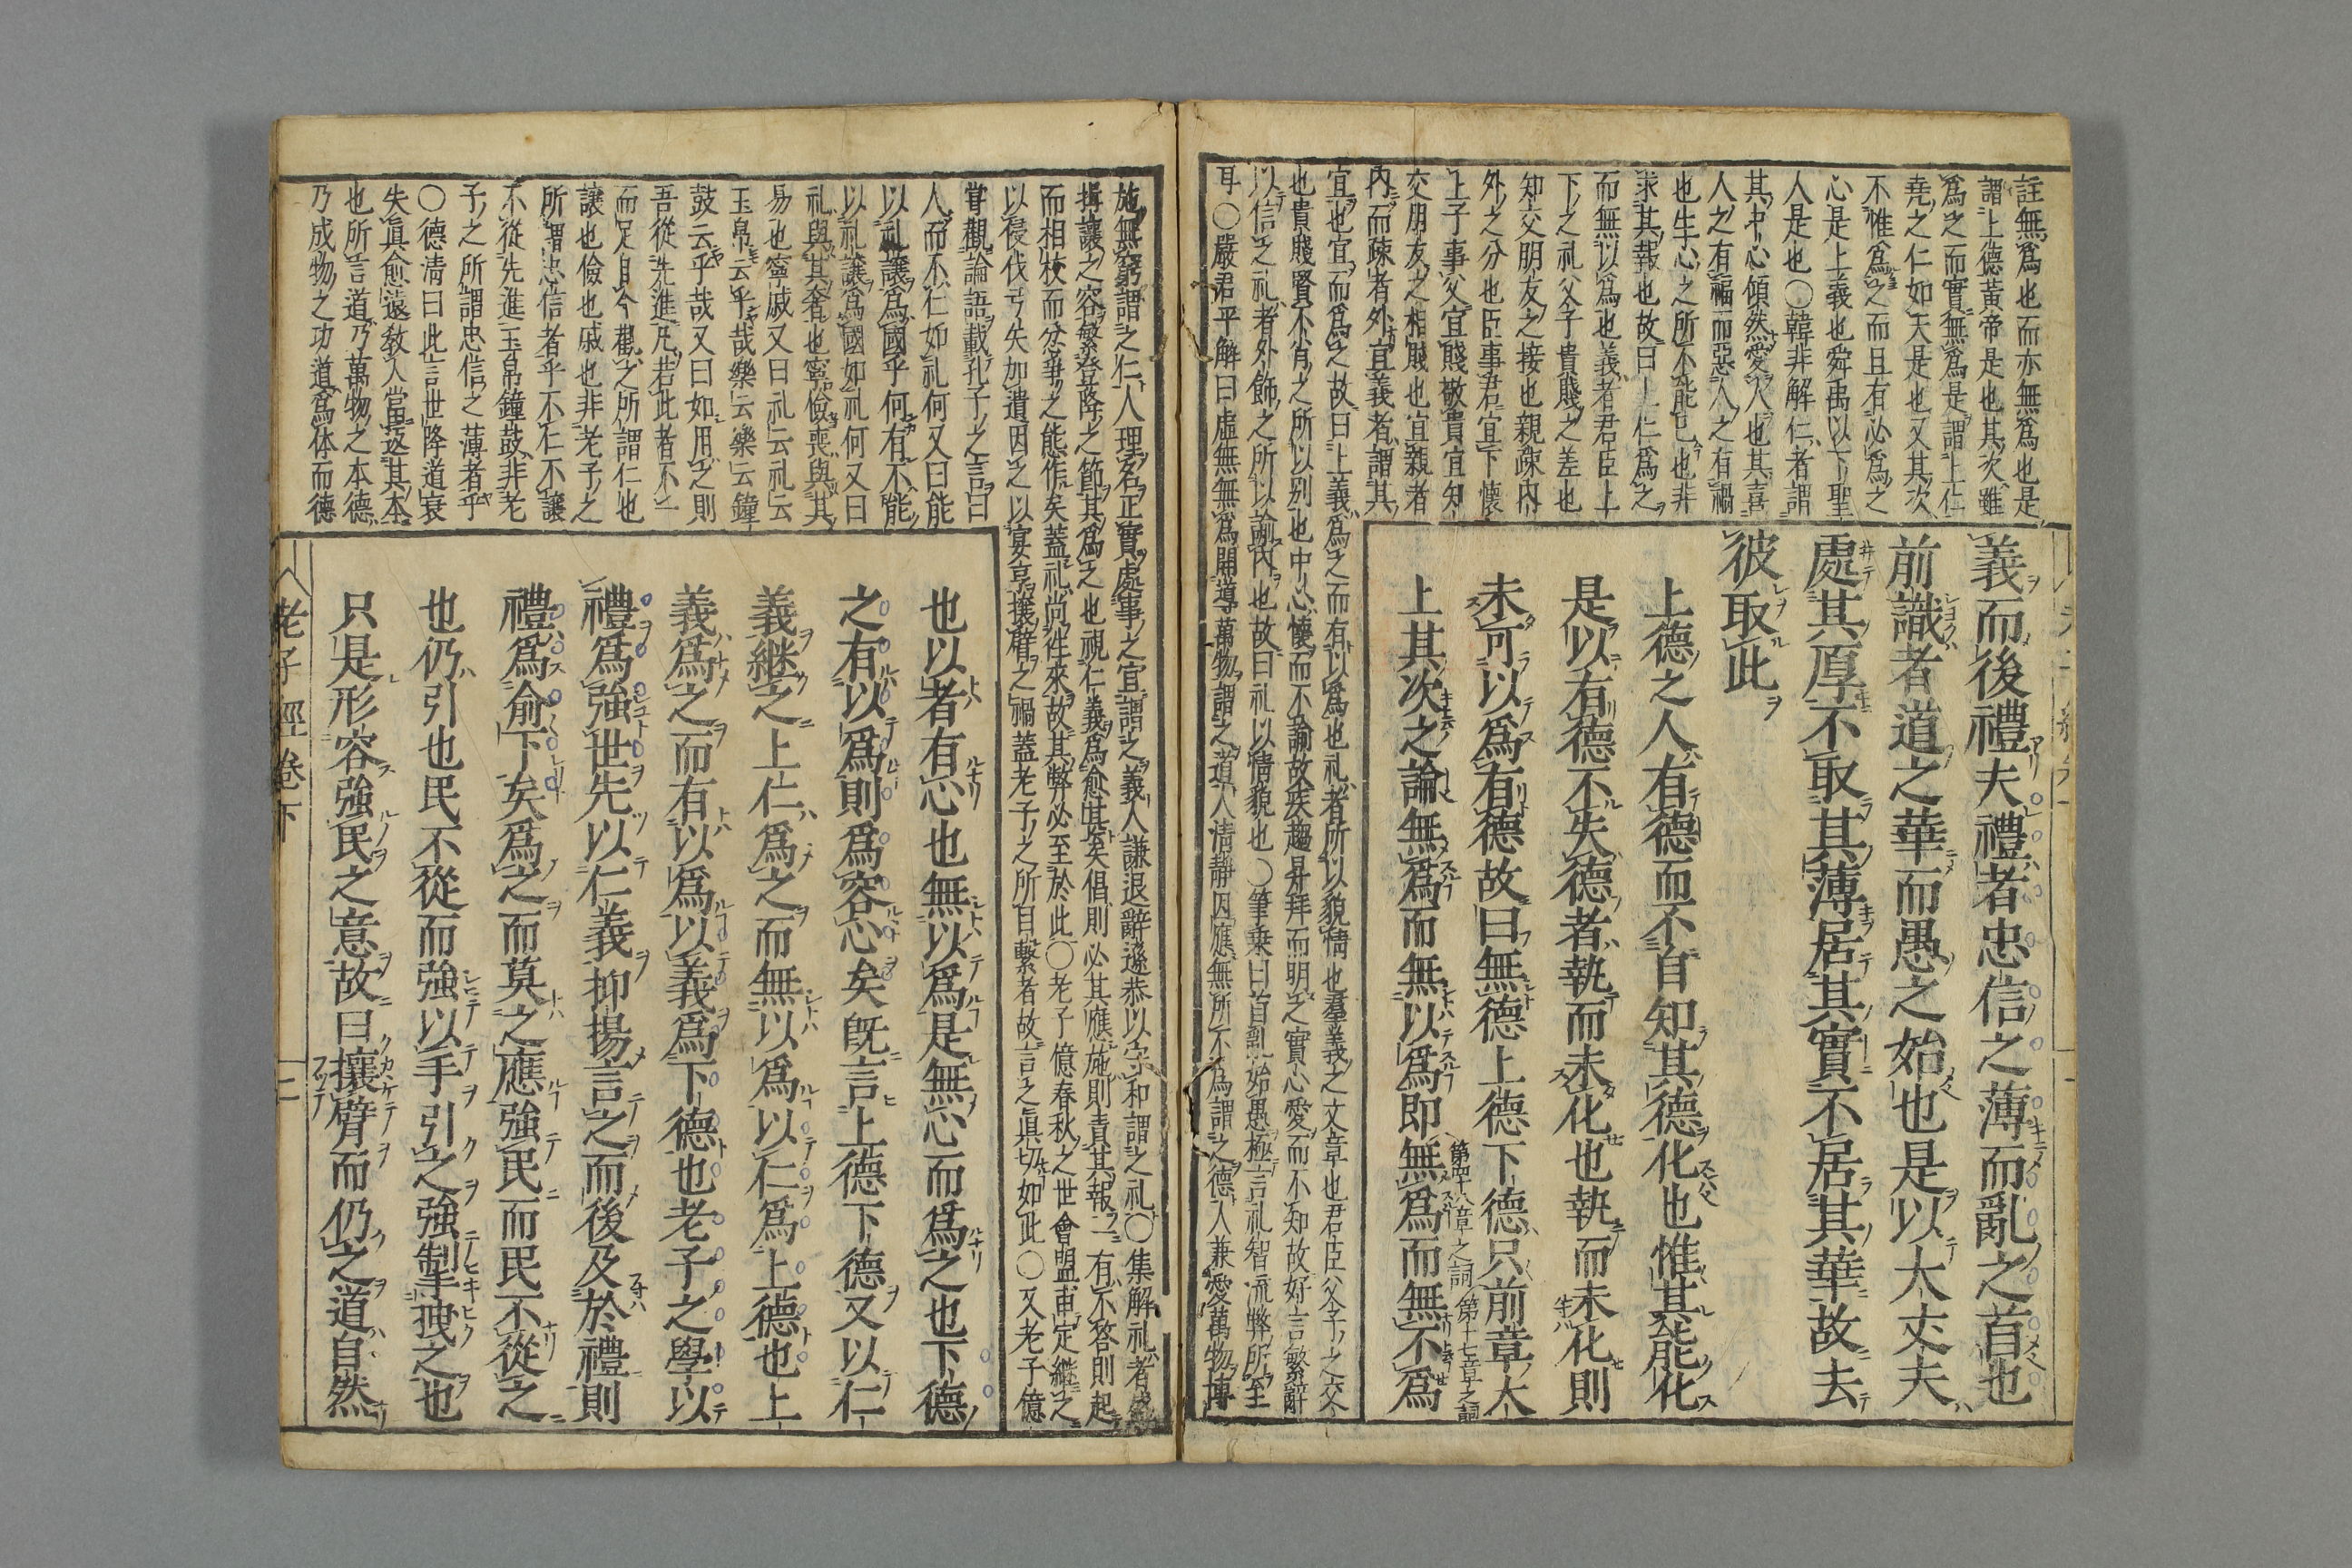 註無爲也而亦無爲也是
謂上德黃帝是也其次雖
爲之而實無爲是謂上仁
堯之仁如天是也又其次
不惟爲之而且有必爲之
心是上義也舜禹以下聖
人是也〇韓非解仁者謂
其中心傾然愛人也其喜
人之有福而惡人之有禍
也生心之所不能已也非
求其報也故曰上仁爲之
而無以爲也義者君臣上
下之礼父子貴賤之差也
知交朋友之接也親疎内
外之分也臣事君宜下懷
上子事父宜賤敬貴宜知
交朋友之相賤也宜親者
内而疎者外宜義者謂其
宜也宜而爲之故曰上義爲之而有以爲也礼者所以貌情也羣義之文章也君臣父子之交
也貴賤賢不肖之所以別也中心懷而不諭故疾趨卑拜而明之實心愛而不知故好言繁辭
以信之礼者外飾之所以諭内也故曰礼以情貌也〇筆乗曰首亂始愚極言礼智流弊所至
耳〇嚴君平解曰虛無無爲開導萬物謂之道人清靜因應無所不爲謂之德人兼愛萬物博
義而後禮夫禮者忠信之薄而亂之首也
前識者道之華而愚之始也是以大丈夫
處其厚不取其薄居其實不居其華故去
彼取此
上德之人有德而不自知其德化也惟其能化
是以有德不失德者執而未化也執而未化則
未可以爲有德故曰無德上德下德只前章太
上其次之論無爲而無以爲即無爲而無不爲
第四十八章之詞第十七章之詞
施無窮謂之仁人理名正實處事之宜謂之義人謙退辭遜恭以守和謂之礼〇集解礼者盛
揖讓之容繁登降之節其爲之也視仁義爲愈甚矣倡則必其應施則責其報一有不答則起
而相校而忿爭之能作矣蓋礼尚徃來故其弊必至於此〇老子億春秋之世會盟甫定継之
以侵伐弓矢加遺因之以宴享攘臂之禍蓋老子之所目繫者故言之眞切如此〇又老子億
嘗觀論語載孔子之言曰
人而不仁如礼何又曰能
以礼讓爲國乎何有不能
以礼讓爲國如礼何又曰
礼與其奢也寧儉喪與其
易也寧戚又曰礼云礼云
玉帛云乎哉樂云樂云鐘
鼓云乎哉又曰如用之則
吾從先進凡若此者不一
而足自今觀之所謂仁也
讓也儉也戚也非老子之
所謂忠信者乎不仁不讓
不從先進玉帛鐘鼓非老
子之所謂忠信之薄者乎
〇德清曰此言世降道衰
失眞愈遠教人當返其本
也所言道乃萬物之本德
乃成物之功道爲体而德
也以者有心也無以爲是無心而爲之也下德
之有以爲則爲容心矣既言上德下德又以仁
義継之上仁爲之而無以爲以仁爲上德也上
義爲之而有以爲以義爲下德也老子之學以
禮爲強世先以仁義抑揚言之而後及於禮則
禮爲俞下矣爲之而莫之應強民而民不從之
也仍引也民不從而強以手引之強掣拽之也
只是形容強民之意故曰攘臂而仍之道自然
老子經卷下
二